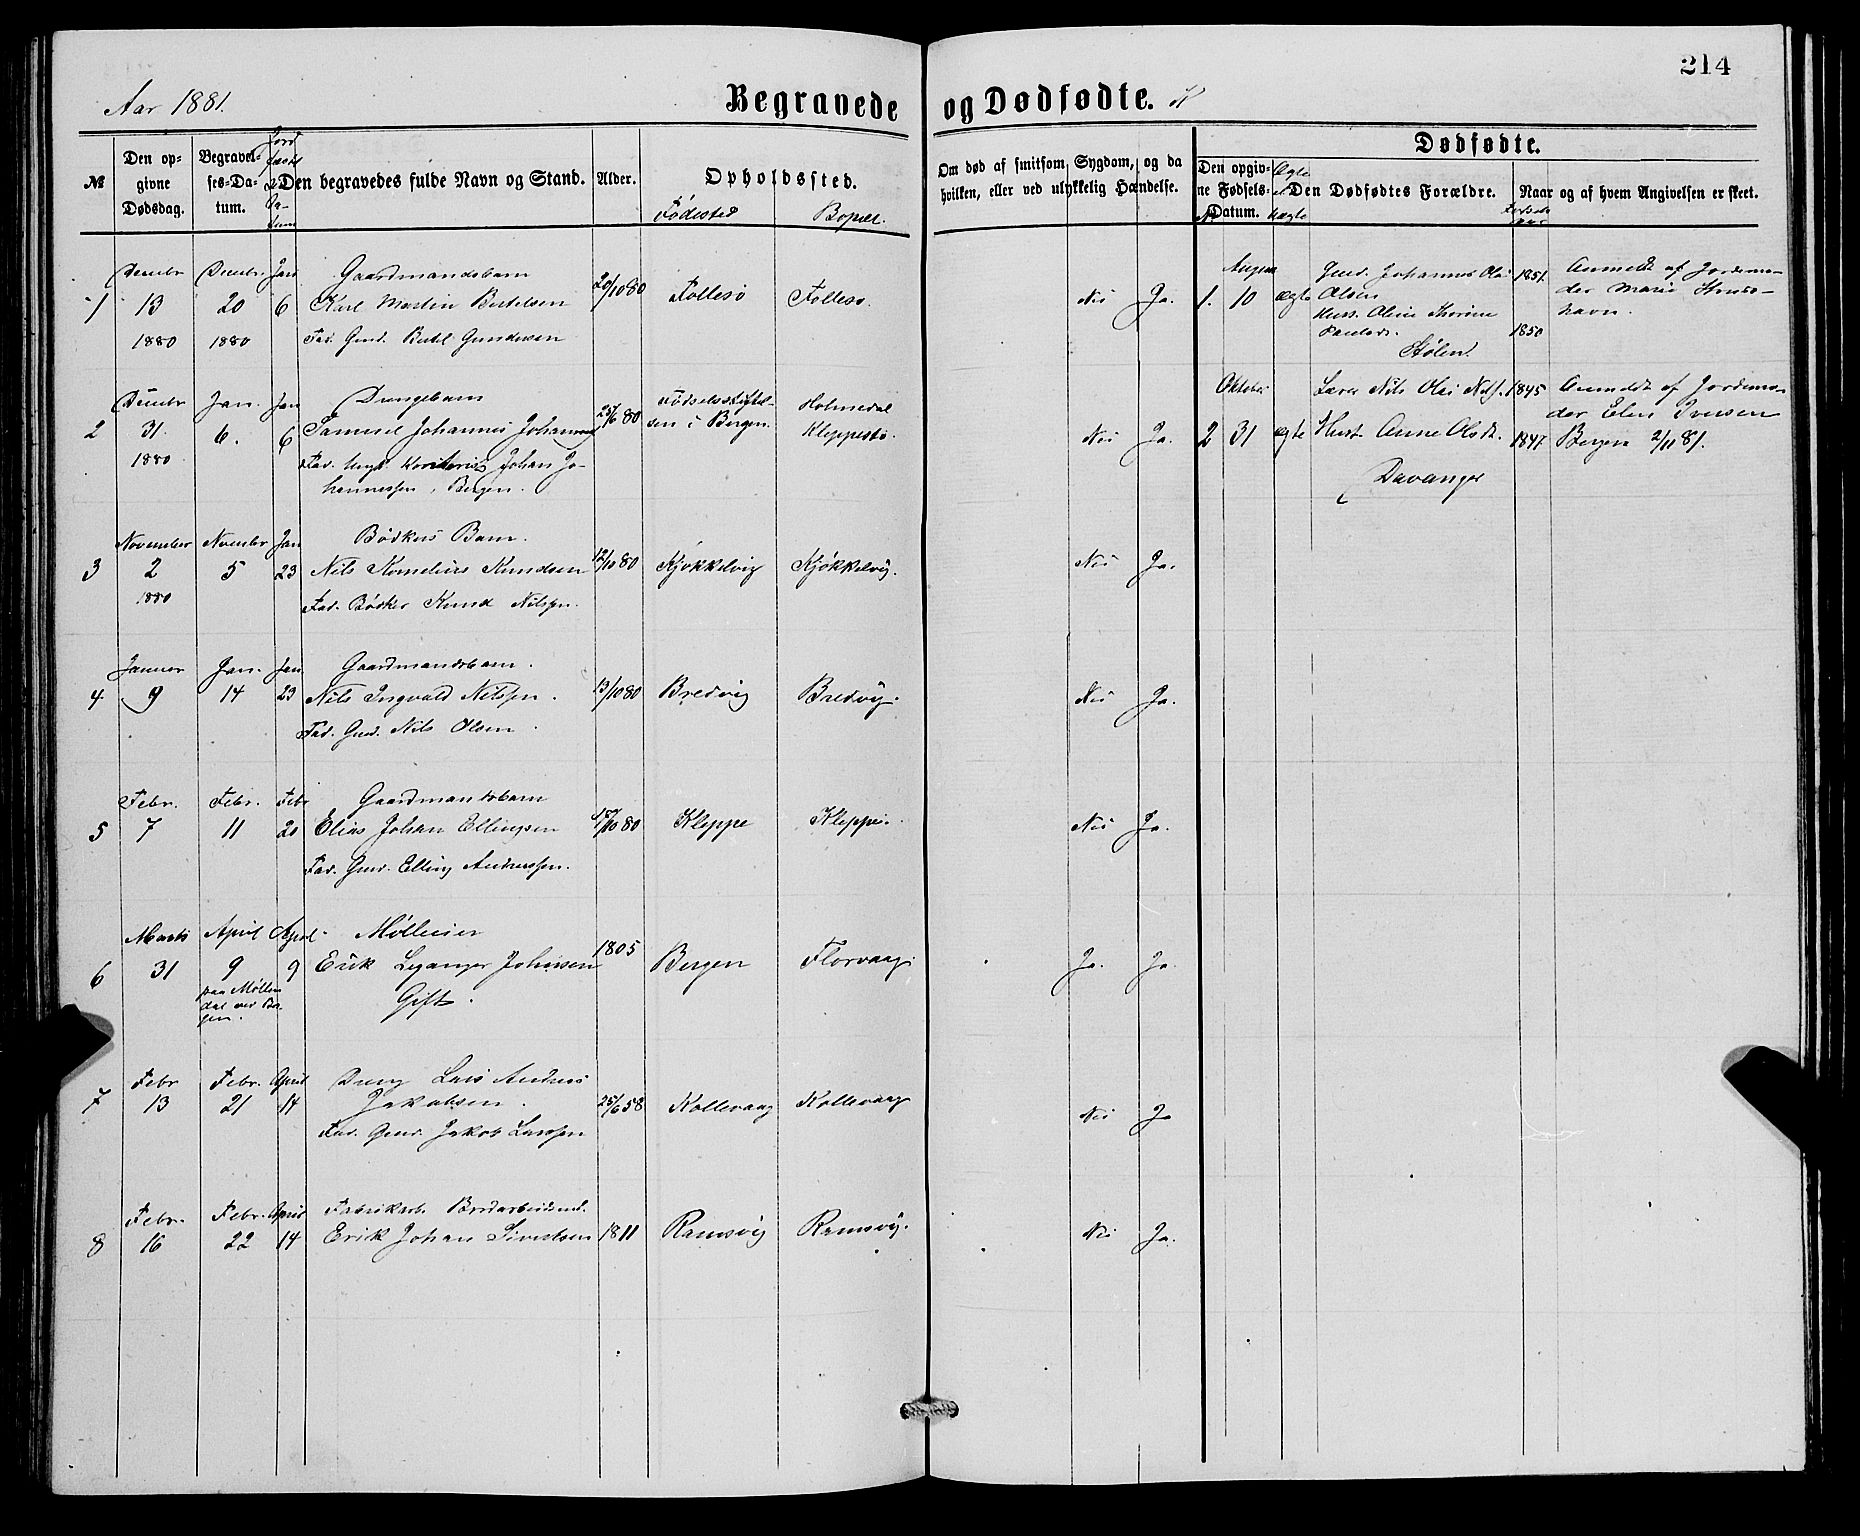 214
Aar 1881.
Begravede og Dødfødte. K
№
Den opgivne Dødsdag.
Begravelses-Datum.
Jordfæstel Datum
Den begravedes fulde Navn og Stand.
Alder.
Opholdssted.
Fødested
Bopæl.
Om død af smitsom Sygdom, og da hvilken, eller ved ulykkelig Hændelse.
Dødfødte.
Den opgivne Fødsels-Datum.
Ægte el. uægte
Den Dødfødtes Forældre.
Fødselsaar
Naar og af hvem Angivelsen er skeet.
1 Decembr 13 1880 Decembr. 20 1880 Jan 6
Gaardmandsbarn
Karl Martin Bertelsen
Fad. Gmd. Bertel Gundersen
20/10 80 Follesø Follesø. Nei Ja.
2 Decembr 31. 1880 Jan. 6. Jan 6
Drengebarn
Samuel Johannes Johannes
Fad. Ungk. Johan Johannessen, Bergen.
25/6 80 Fødselsstiftelsen i Bergen. Holmedal Kleppestø. Nei Ja.
3 November 2 1880 Novembr 5 Jan 23
Bødkers Barn.
Nils Kornelius Knudsen
Fad. Bødker Knud Nilssen.
12/10 80 Kjøkkelvig Kjøkkelvig. Nei Ja.
4 Januar 9 Jan. 14 Jan 23
Gaardmandsbarn.
Nils Ingvald Nilssen.
Fad. Gmd. Nils Olsen.
13/10 80 Bredvig Bredvig. Nei Ja.
5 Febr. 7 Febr. 11 Febr 20
Gaardmandsbarn
Elias Johan Ellingsen
Fad. Gmd. Elling Anderssen.
15/10 80 Kleppe Kleppe. Nei Ja.
6 Marts 31 April 9 paa Møllendal ved Bergen. April 9
Mølleier
Erik Leganger Johnsen
Gift.
1805 Bergen Florvaag. Ja. Ja.
7 Febr 13 Febr. 21 April 14
Dreng Lars Andreas
Jakobsen.
Fad. Gmd. Jakob Larssen
25/6 58 Kollevaag Kollevaag Nei Ja
8 Febr. 16 Febr. 22 April 14
Fabrikarb.
Erik Johan Sivertsen
1811 Ramsvig Ramsvig. Nei Ja.
1. August 10 ægte
Gmd. Johannes Olai Olsen 1851.
Hust. Oline Thorine Paulsdr. 1850
Stølen.
Anmeldt af Jordemoder Marie
2 Oktober 31 ægte
Lærer Nils Olai Nels. 1845
Hust. Anne Olsdt. 1847.
Davanger
Anmeldt af Jordemoder Elen Iversen
Bergen 2/11 81.